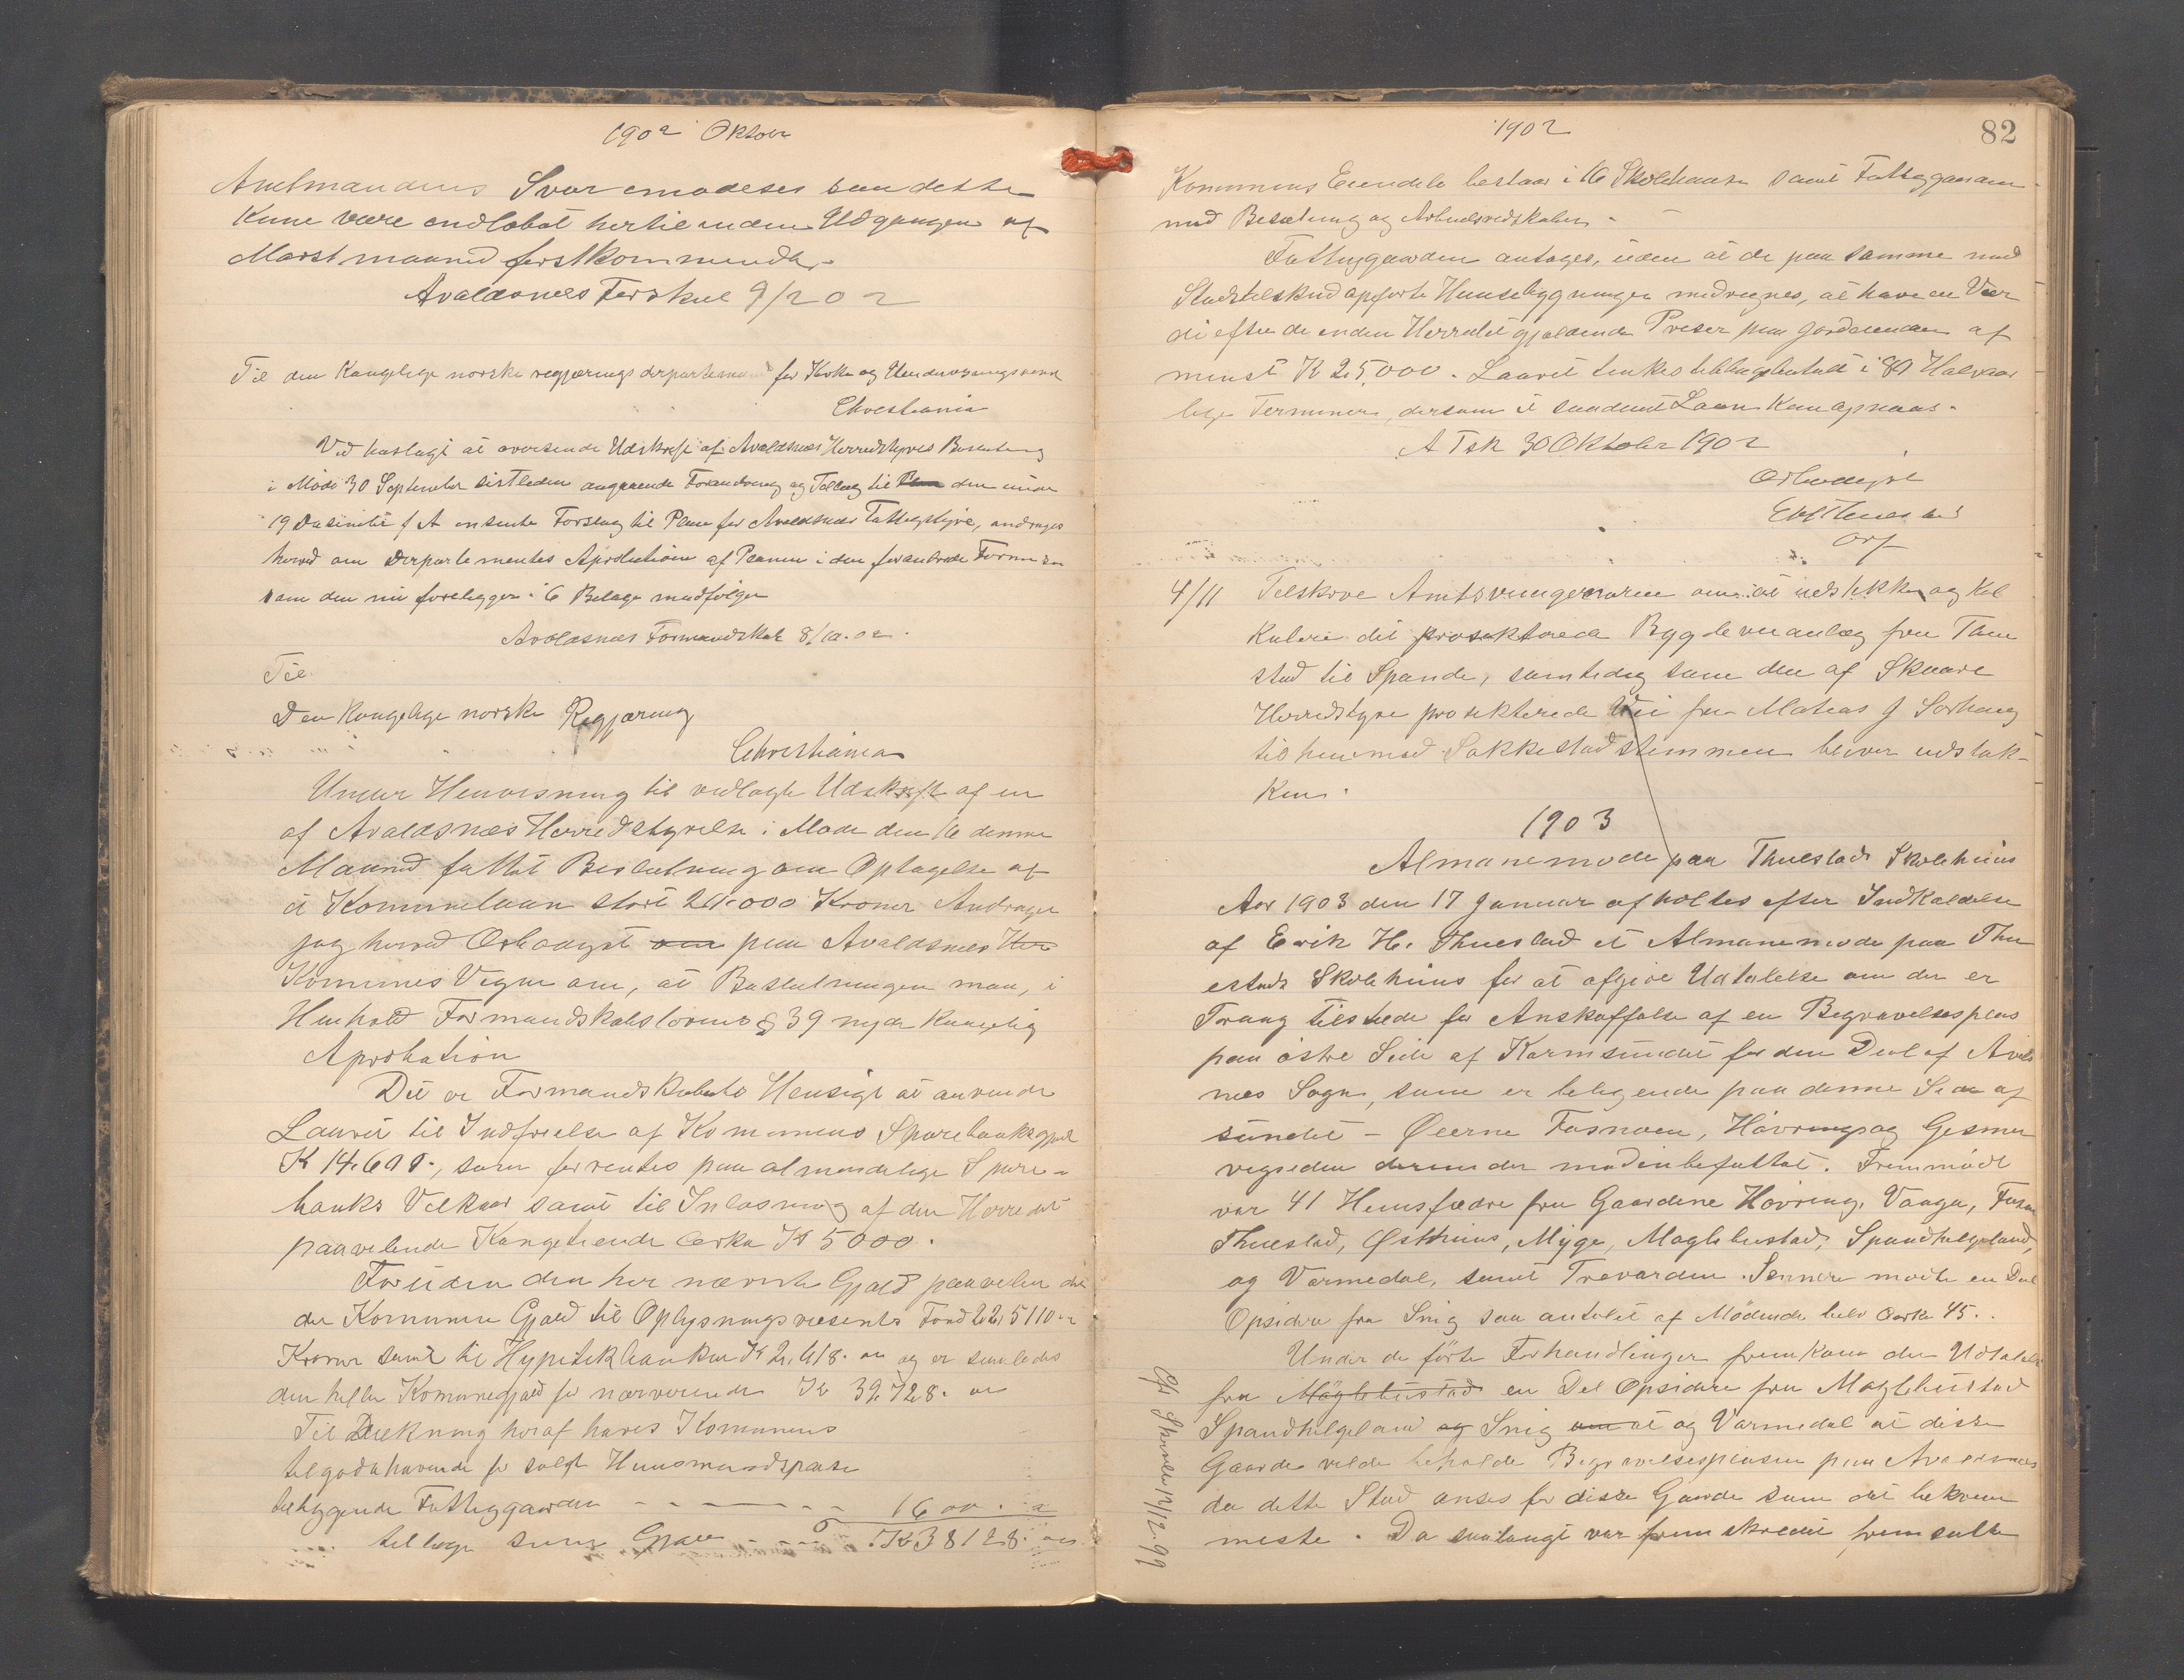 1902 Oktober
Amtmandens Svar imødeses som dette
Kune være indløbet hertil inden Udgangen af
Marst maaned førstkommende.
Avaldsnes Forskab 9/202
Til den Kongelige norske regjærings departement for Kirke og Undervisningsvæsen
Christiania
Ved hoslagt at oversende Udskrift af Avaldsnes Herredstyres Beslutning
i Møde 30 September sistleden angaaende Forandring og Tillæg til den under
19 f A insente Forslag til Plan for Avaldsnes Fattigstyre, andrages
herved om Departementes Aprobation af Planen i den forandrede Form
som den nu foreligger. 6 Belage medfølger
Avaldsnes Formandskab 8/10.02.
Til
Den Kongelige norske Regjæring
Christiania
Under Henvisning til vedlagte Udskrift af en
af Avaldsnes Herredstyrelse i Møde den 16 denne
Maaned fattet Beslutning om Optagelse af
et Komunelaan stort 20.000 Kroner Andrager
jeg herved Ærbødigst om paa Avaldsnes Her
Komunes Vegne om, at Beslutningen maa, i
Henhold Formandskabslovens § 39 nyde Kongelig
Aprobation
Det er Formandskabets Hensigt at anvende
Laanet til Indfrielse af Komunens Sparebanksgjæld
Kr 14,690., som forrentes paa almindelige Spare-
banks Vilkaar samt til Inløsning af den Herredet
paavilende Kongetiende Cerka Kr 5000.
Foruden den her nævnte Gjæld paaviler der
der Komunen Gjæld til Oplysningsvæsents Fond
Kroner samt til Hypotekbanken Kr 2,418. og er saaledes
den hele Komunegjæld for nærværende Kr 39,728.
Til Dækning heraf haves Komunens
tilgodehavende for solgt Huusmandsplase
tilliggende Fattiggaarden - - - - 1600.
tilbage Gjæld - - - Kr 38128.
1902
82
Komunens Eiendele bestaar i 16 Skolehuuse samt Fattiggaarden
med Besætning og Arbeidsredskaber.
Fattiggaarden antages, uden at de paa samme med
Stadstilskud opførte Huusebygninger medregnes, at have en Vær
di efter de inden Herredet gjældende Priser paa Jordeiendom af
minst Kr 25,000. Laanet tenkes tilbagebetalt i 80 Halvaar
lige Terminer, dersom et saadant Laan Kan opnaas.
A Fsk 30 Oktober 1902
Ærbødigst
Orf
4/11 Tilskrive Amtsvei om at udstikke og Kal
Kulere det prosekterede Bygdeveianlæg fra Thue
stad til Spande, samtidig som den af Skaare
Herredstyre prosekterede Vei fra Mateas J Sørhaug
til henimod Sakkestadstemmen bliver udstuk-
Ken.
1903
Almanemøde paa Thuestads Skolehuus
Aar 1903 den 17 Januar afholtes efter Indkaldelse
af Eirik H. Thuestad et Almanemøde paa Thu
estads Skolehuus for at afgive Udtalelse om der er
Trang tilstede for Anskaffelse af en Begravelsesplas
paa østre Side af Karmsundet for den Deel af Avals
nes Sogn, som er beligende paa denne Side af
sundet - Øerne Fosnaen, Høvring og Gismer
vigseden derunder medinbefattet. Fremmødt
var 41 Huusfædre fra Gaardene Høvring, Vaaga, Fosen
Thuestad, Østhuus, Myge, Maglebustad, Spandhelgeland,
og Varmedal, samt Trevarden. Sennere mødte en Del
Opsidere fra Snig saa antalet af Mødende blev Cerka 45.
Under de førte Forhandlinger fremkom den Udtalelse
fra Maglebustad en Del Opsidere fra Maglebustad
Spandhelgeland og Snig om at og Varmedal at disse
Gaarde vilde beholde Begravelsesplassen paa Avaldsnes
da dette Sted anses for disse Gaarde som det bekvem
meste. Da saalangt var fremskredet fremsatte
Cfr Skrivelse 12/12.99